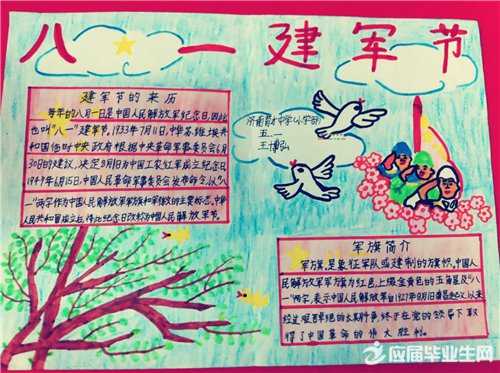 八一建军节
建军节的来历
每年的八月一日是中国人民解放军纪念日,因此
也叫"八一"建军节。1933年7月11日,中华苏维埃共
和国临时中央政府根据中央军事委员会6月
30日的建议,决定8月1日为中国工农红军成立纪念日
1949年6月15日,中国人民革命军事委员会发布命令,以"八
一"两字作为中国人民解放军军旗和军徽的主要标志。中华
人民共和国成立后,将此纪念日改称为中国人民解放军建军节。
济南育才中学(小学部)
五、一
王博弘
军旗简介
军旗,是象征军队或建制的旗帜。中国人
民解放军军旗为红色,上缀金黄色的五角星及"八
一"两字,表示中国人民解放军自1927年8月1日南昌起义以来
经过艰苦卓绝的长期斗争,终于在党的领导下取
得了中国革命的伟大胜利。
应届毕业生网